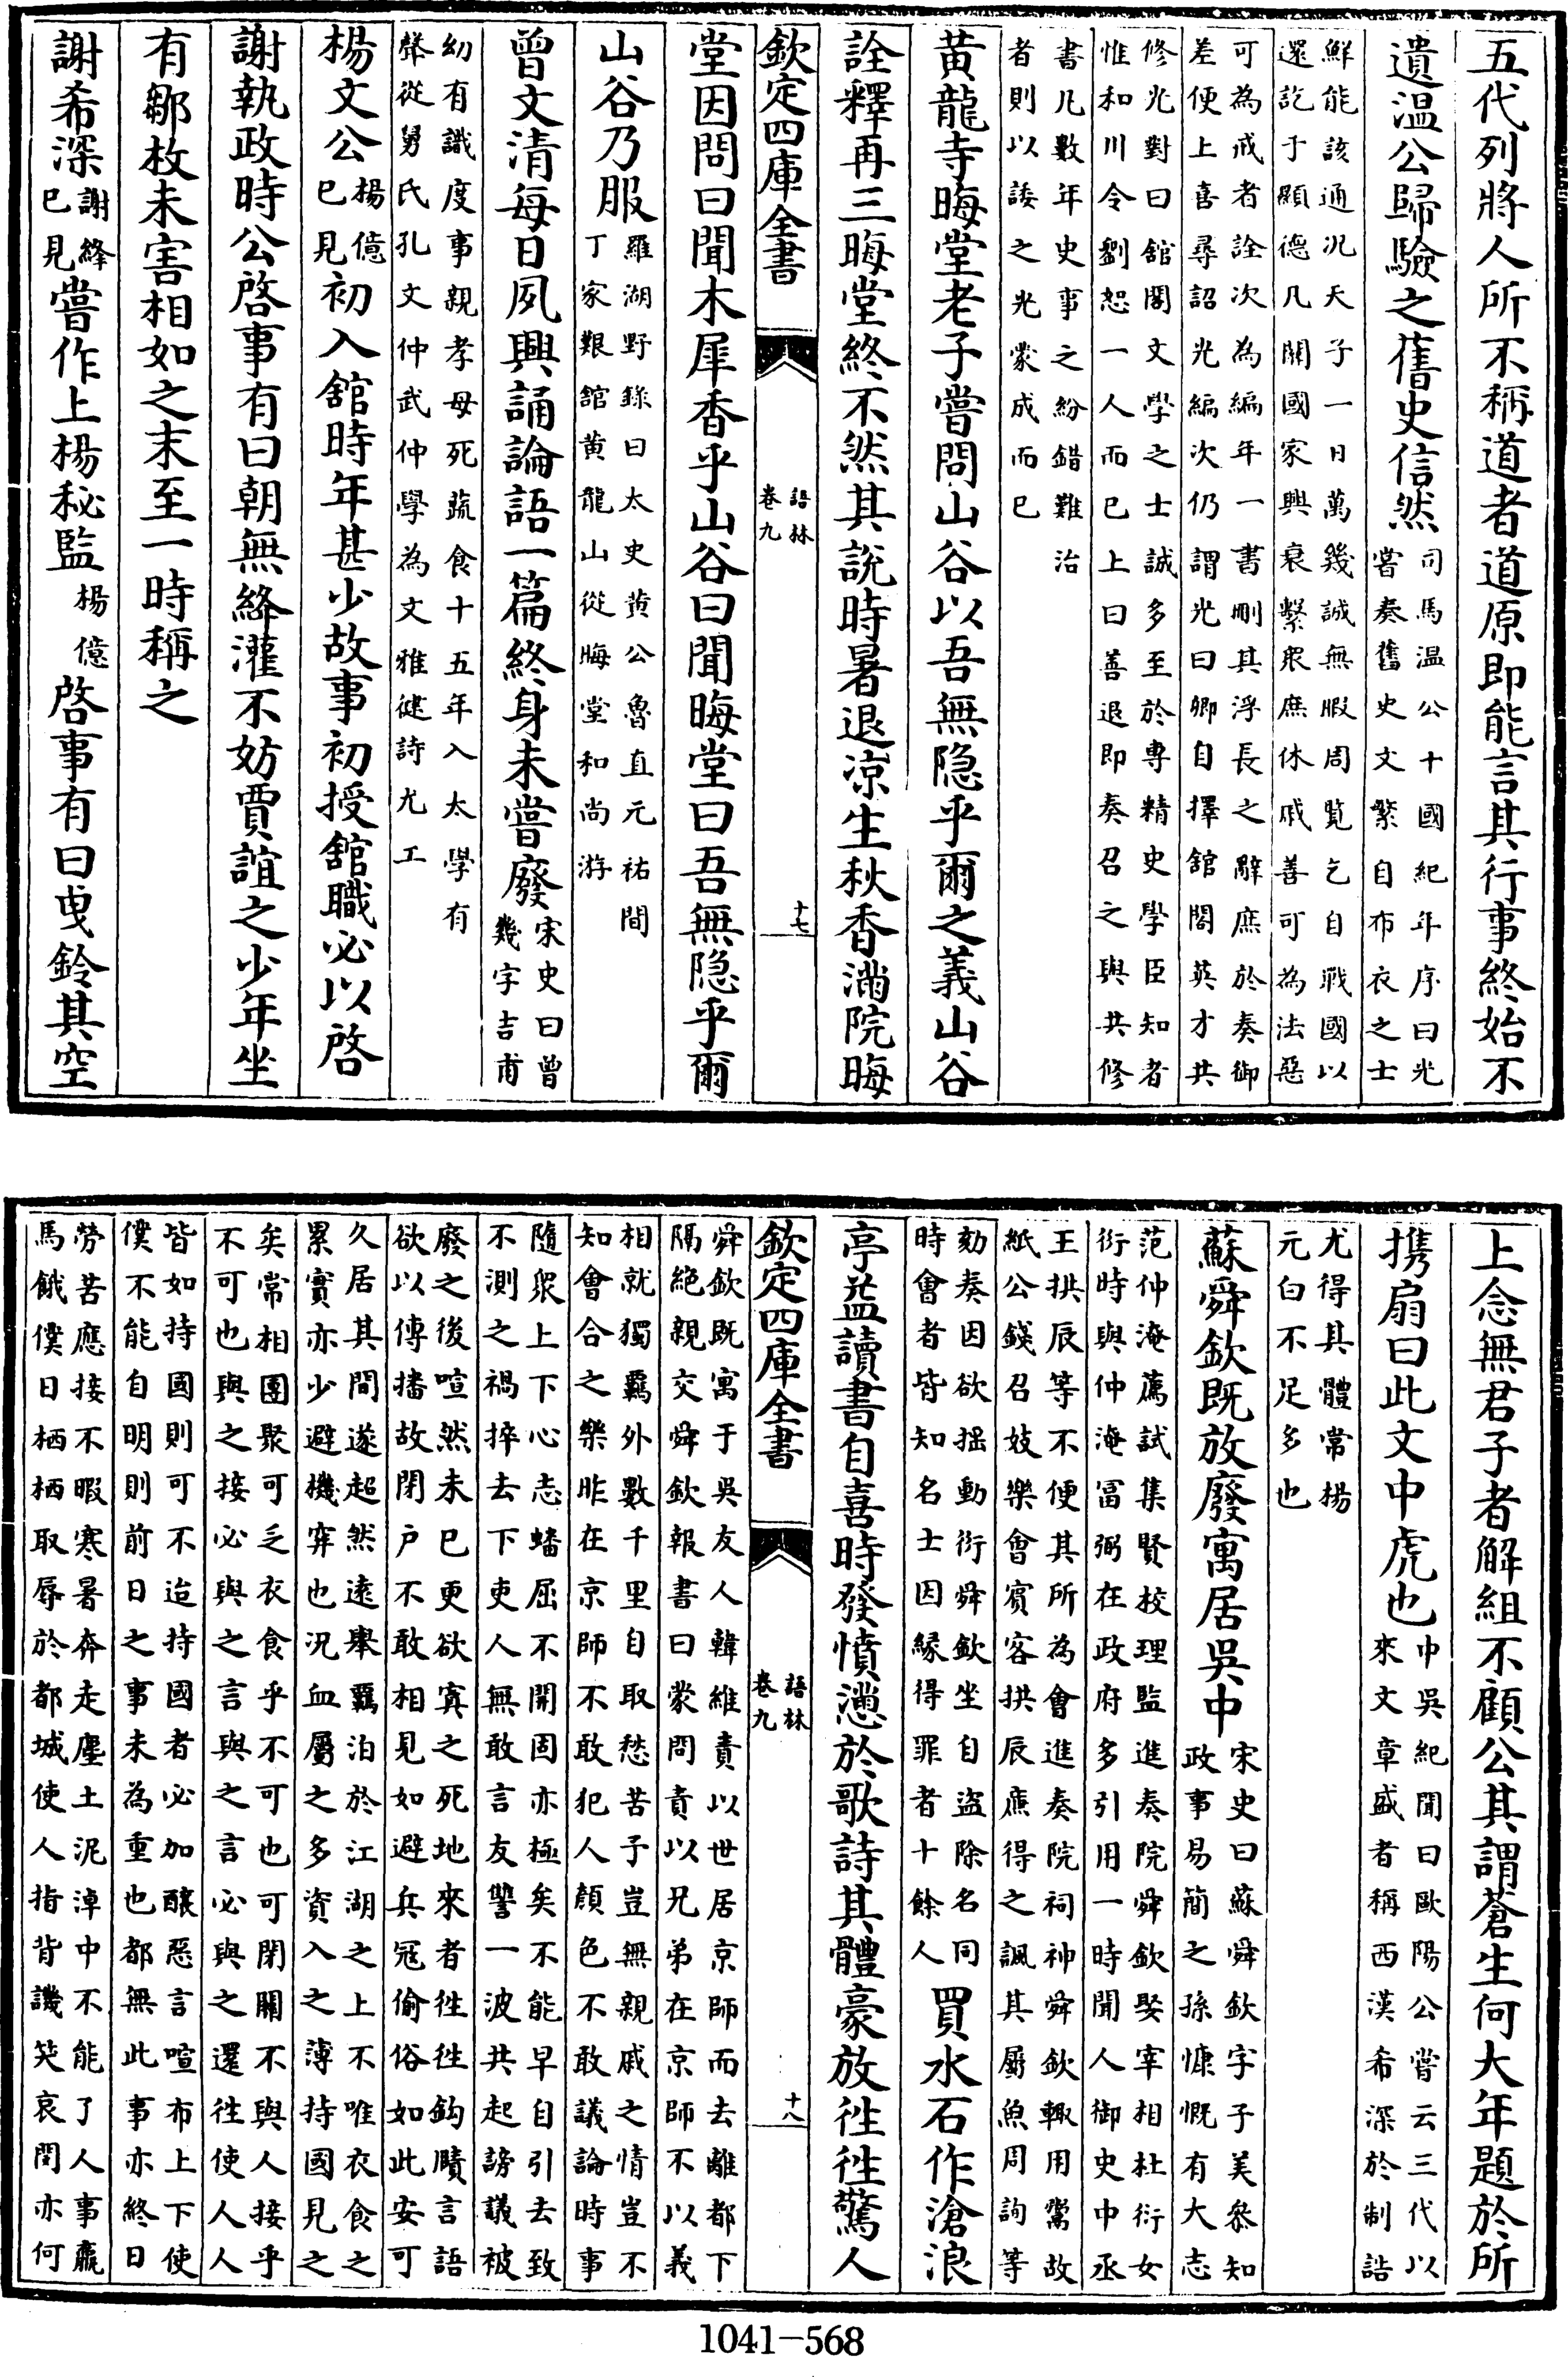 五代列將人所不稱道者道原即能言其行事終始不
遺温公歸驗之舊史信然司馬温公十國紀年序曰光
嘗奏舊史文繁自布衣之士
鮮能該通况天子一日萬幾誠無暇周覧乞自戰國以
還訖于顯德凡關國家興衰繫衆庶休戚善可為法惡
可為戒者詮次為編年一書刪其浮長之辭庶於奏御
差便上喜尋詔光編次仍謂光曰卿自擇舘閣英才共
修光對曰舘閣文學之士誠多至於専精史學臣知者
惟和川令劉恕一人而已上曰善退即奏召之與共修
書凡數年史事之紛錯難治
者則以諉之光蒙成而已
黄龍寺晦堂老子嘗問山谷以吾無隐乎爾之義山谷
詮釋再三晦堂終不然其說時暑退凉生秋香滿院晦
欽定四庫全書
語林
卷九
十七
堂因問曰聞木犀香乎山谷曰聞晦堂曰吾無隐乎爾
山谷乃服羅湖野錄曰太史黄公魯直元祐間
丁家艱舘黄龍山從晦堂和尚游
曾文清每日夙興誦論語一篇終身未嘗廢宋史曰曾
幾字吉甫
幼有識度事親孝母死蔬食十五年入太學有
聲從舅氏孔文仲武仲學為文雅健詩尤工
楊文公楊億
已見初入舘時年甚少故事初授舘職必以啓
謝執政時公啓事有曰朝無絳灌不妨賈誼之少年坐
有鄒枚未害相如之末至一時稱之
謝希深謝絳
已見嘗作上楊秘監楊億啓事有曰曵鈴其空
上念無君子者解組不顧公其謂蒼生何大年題於所
携扇曰此文中虎也中吳紀聞曰歐陽公嘗云三代以
來文章盛者稱西漢希深於制誥
尤得其體常楊
元白不足多也
蘇舜欽既放廢寓居吳中宋史曰蘇舜欽字子美叅知
政事易簡之孫慷慨有大志
范仲淹薦試集賢校理監進奏院舜欽娶宰相杜衍女
衍時與仲淹冨弼在政府多引用一時聞人御史中丞
王拱辰等不便其所為會進奏院祠神舜欽輙用鬻故
紙公錢召妓樂會賓客拱辰廉得之諷其屬魚周詢等
劾奏因欲揺動衍舜欽坐自盗除名同
時會者皆知名士因縁得罪者十餘人買水石作滄浪
亭益讀書自喜時發憤懣於歌詩其體豪放徃徃驚人
欽定四庫全書
語林
卷九
十八
舜欽既寓于吳友人韓維責以世居京師而去離都下
隔絶親交舜欽報書曰蒙問責以兄弟在京師不以義
相就獨羈外數千里自取愁苦予豈無親戚之情豈不
知會合之樂昨在京師不敢犯人顔色不敢議論時事
隨衆上下心志蟠屈不開固亦極矣不能早自引去致
不測之禍捽去下吏人無敢言友讐一波共起謗議被
廢之後喧然未已更欲寘之死地來者徃徃鈎賾言語
欲以傳播故閉户不敢相見如避兵冦偷俗如此安可
久居其間遂超然逺舉羈泊於江湖之上不唯衣食之
累實亦少避機穽也况血屬之多資入之薄持國見之
矣常相團聚可乏衣食乎不可也可閉關不與人接乎
不可也與之接必與之言與之言必與之還徃使人人
皆如持國則可不迨持國者必加釀惡言喧布上下使
僕不能自明則前日之事未為重也都無此事亦終日
勞苦應接不暇寒暑奔走塵土泥淖中不能了人事羸
馬餓僕日栖栖取辱於都城使人指背譏笑哀閔亦何
1041-568